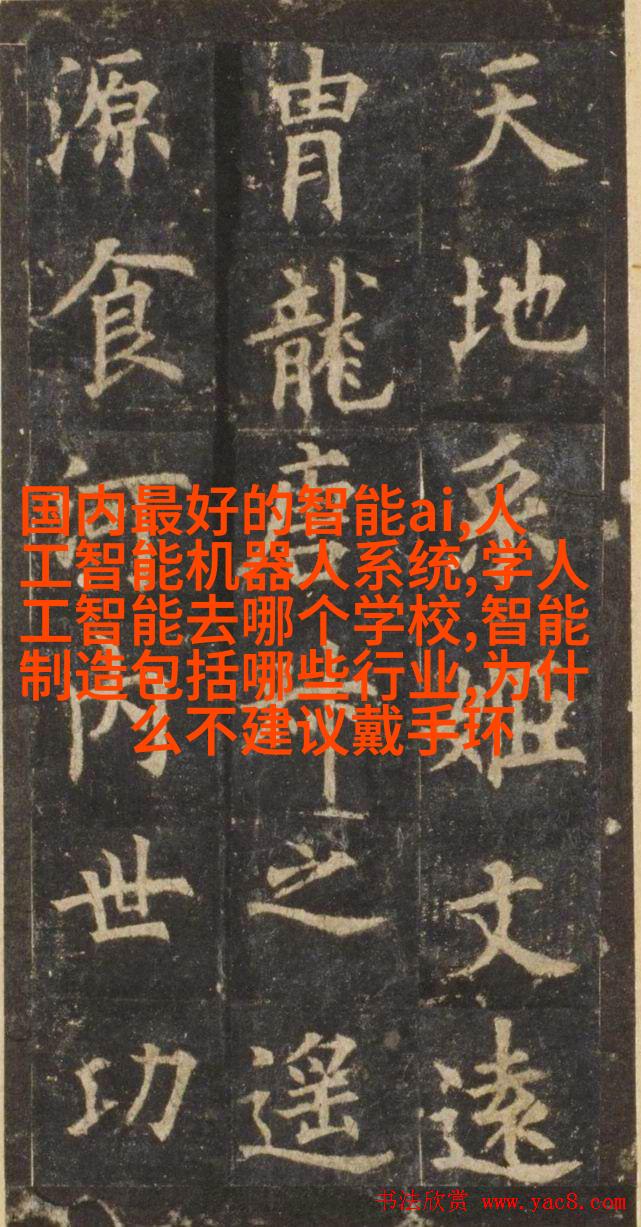 天地姬文遠
胄龍唐之遥
源食河内世功
国内最好的智能ai,人
工智能机器人系统,学人
工智能去哪个学校,智能
制造包括哪些行业,为什
么不建议戴手环
书法欣赏 www.yac8.com